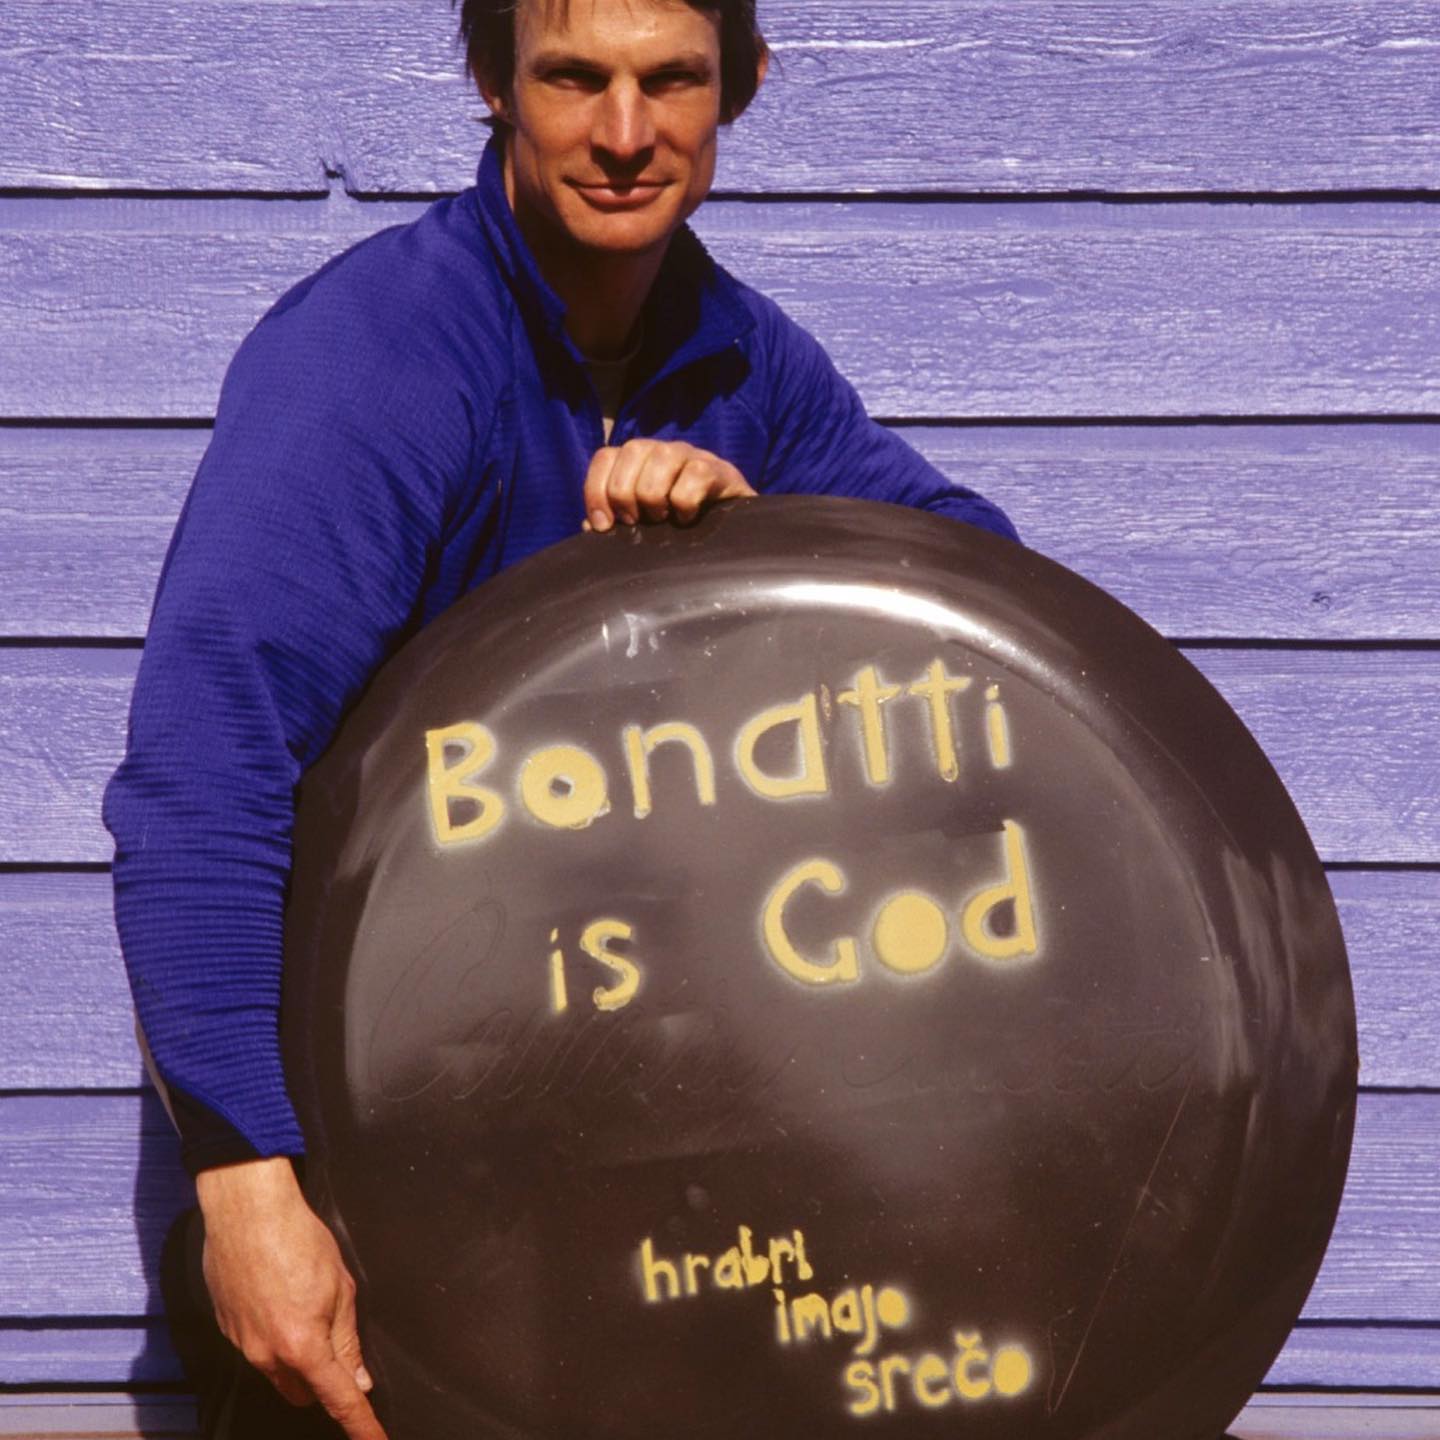 Bonatti
is God
hrabri
imajo
srečo